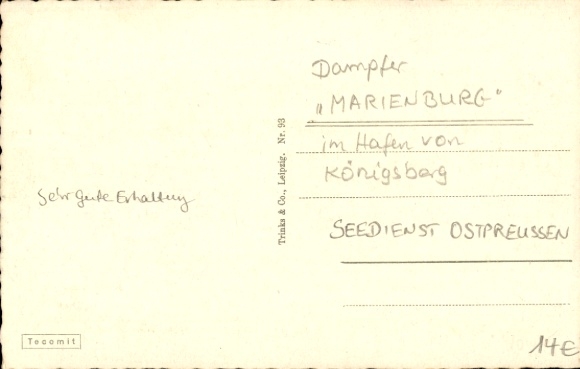 Dampfer
„MARIENBURG"
im Hafen von
Königsberg
SEEDIENST OSTPREUSSEN
Sehr gute Erhaltung
Trinks & Co., Leipzig. Nr. 93
Tecomit
14€